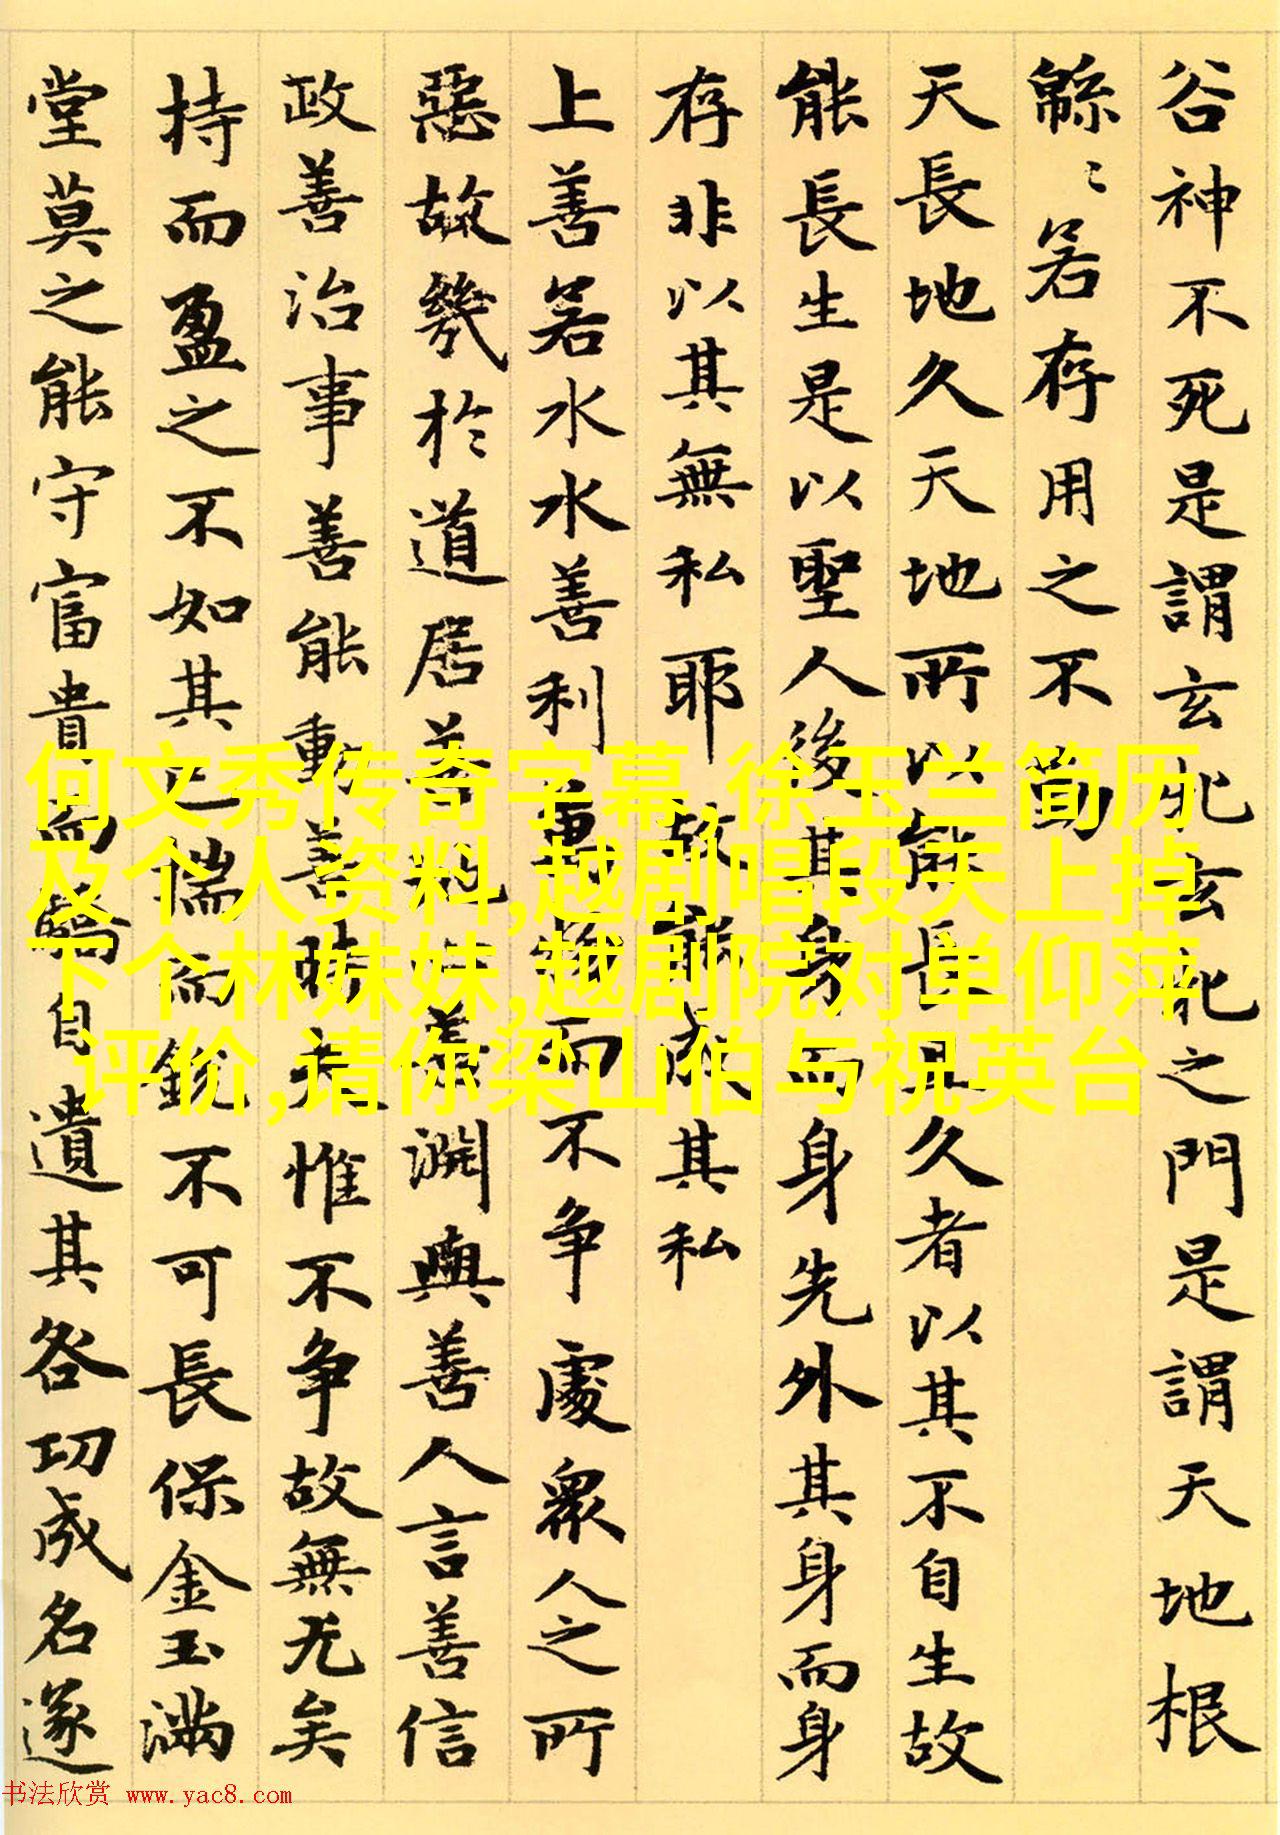 谷神不死是謂玄牝玄牝之門是謂天地根
緜〻若存用之不勤
天長地久天地所以能長且久者以其不自生故
能長生是以聖人後其身而身先外其身而身
存非以其無私耶故能成其私
上善若水水善利萬物而不争處衆人之所
惡故幾於道居善地心善淵與善人言善信
政善治事善能動善時夫惟不争故無尤矣
持而盈之不如其已揣而銳不可長保金玉滿
堂莫之能守富貴而驕自遺其咎功成名遂
何文秀传奇字幕,徐玉兰简历
及个人资料,越剧唱段天上掉
下个林妹妹,越剧院对单仰萍
评价,请你梁山伯与祝英台
书法欣赏 www.yac8.com